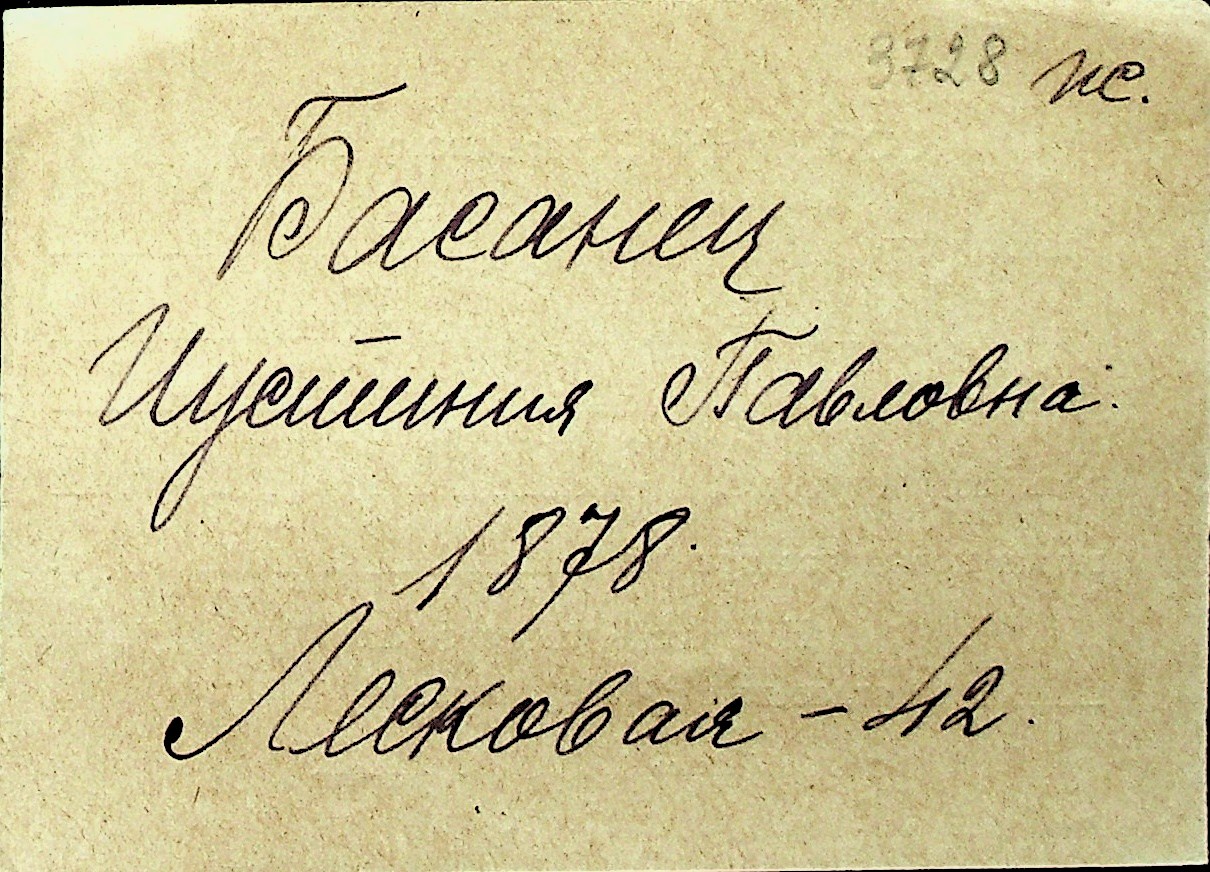 3728 пс.
Басанец
Иустиния Павловна.
1878.
Лесковая - 42.